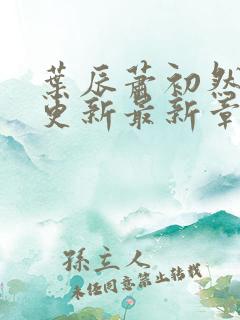 葉辰蕭初然
更新最新章
孫主人
未經同意禁止轉載